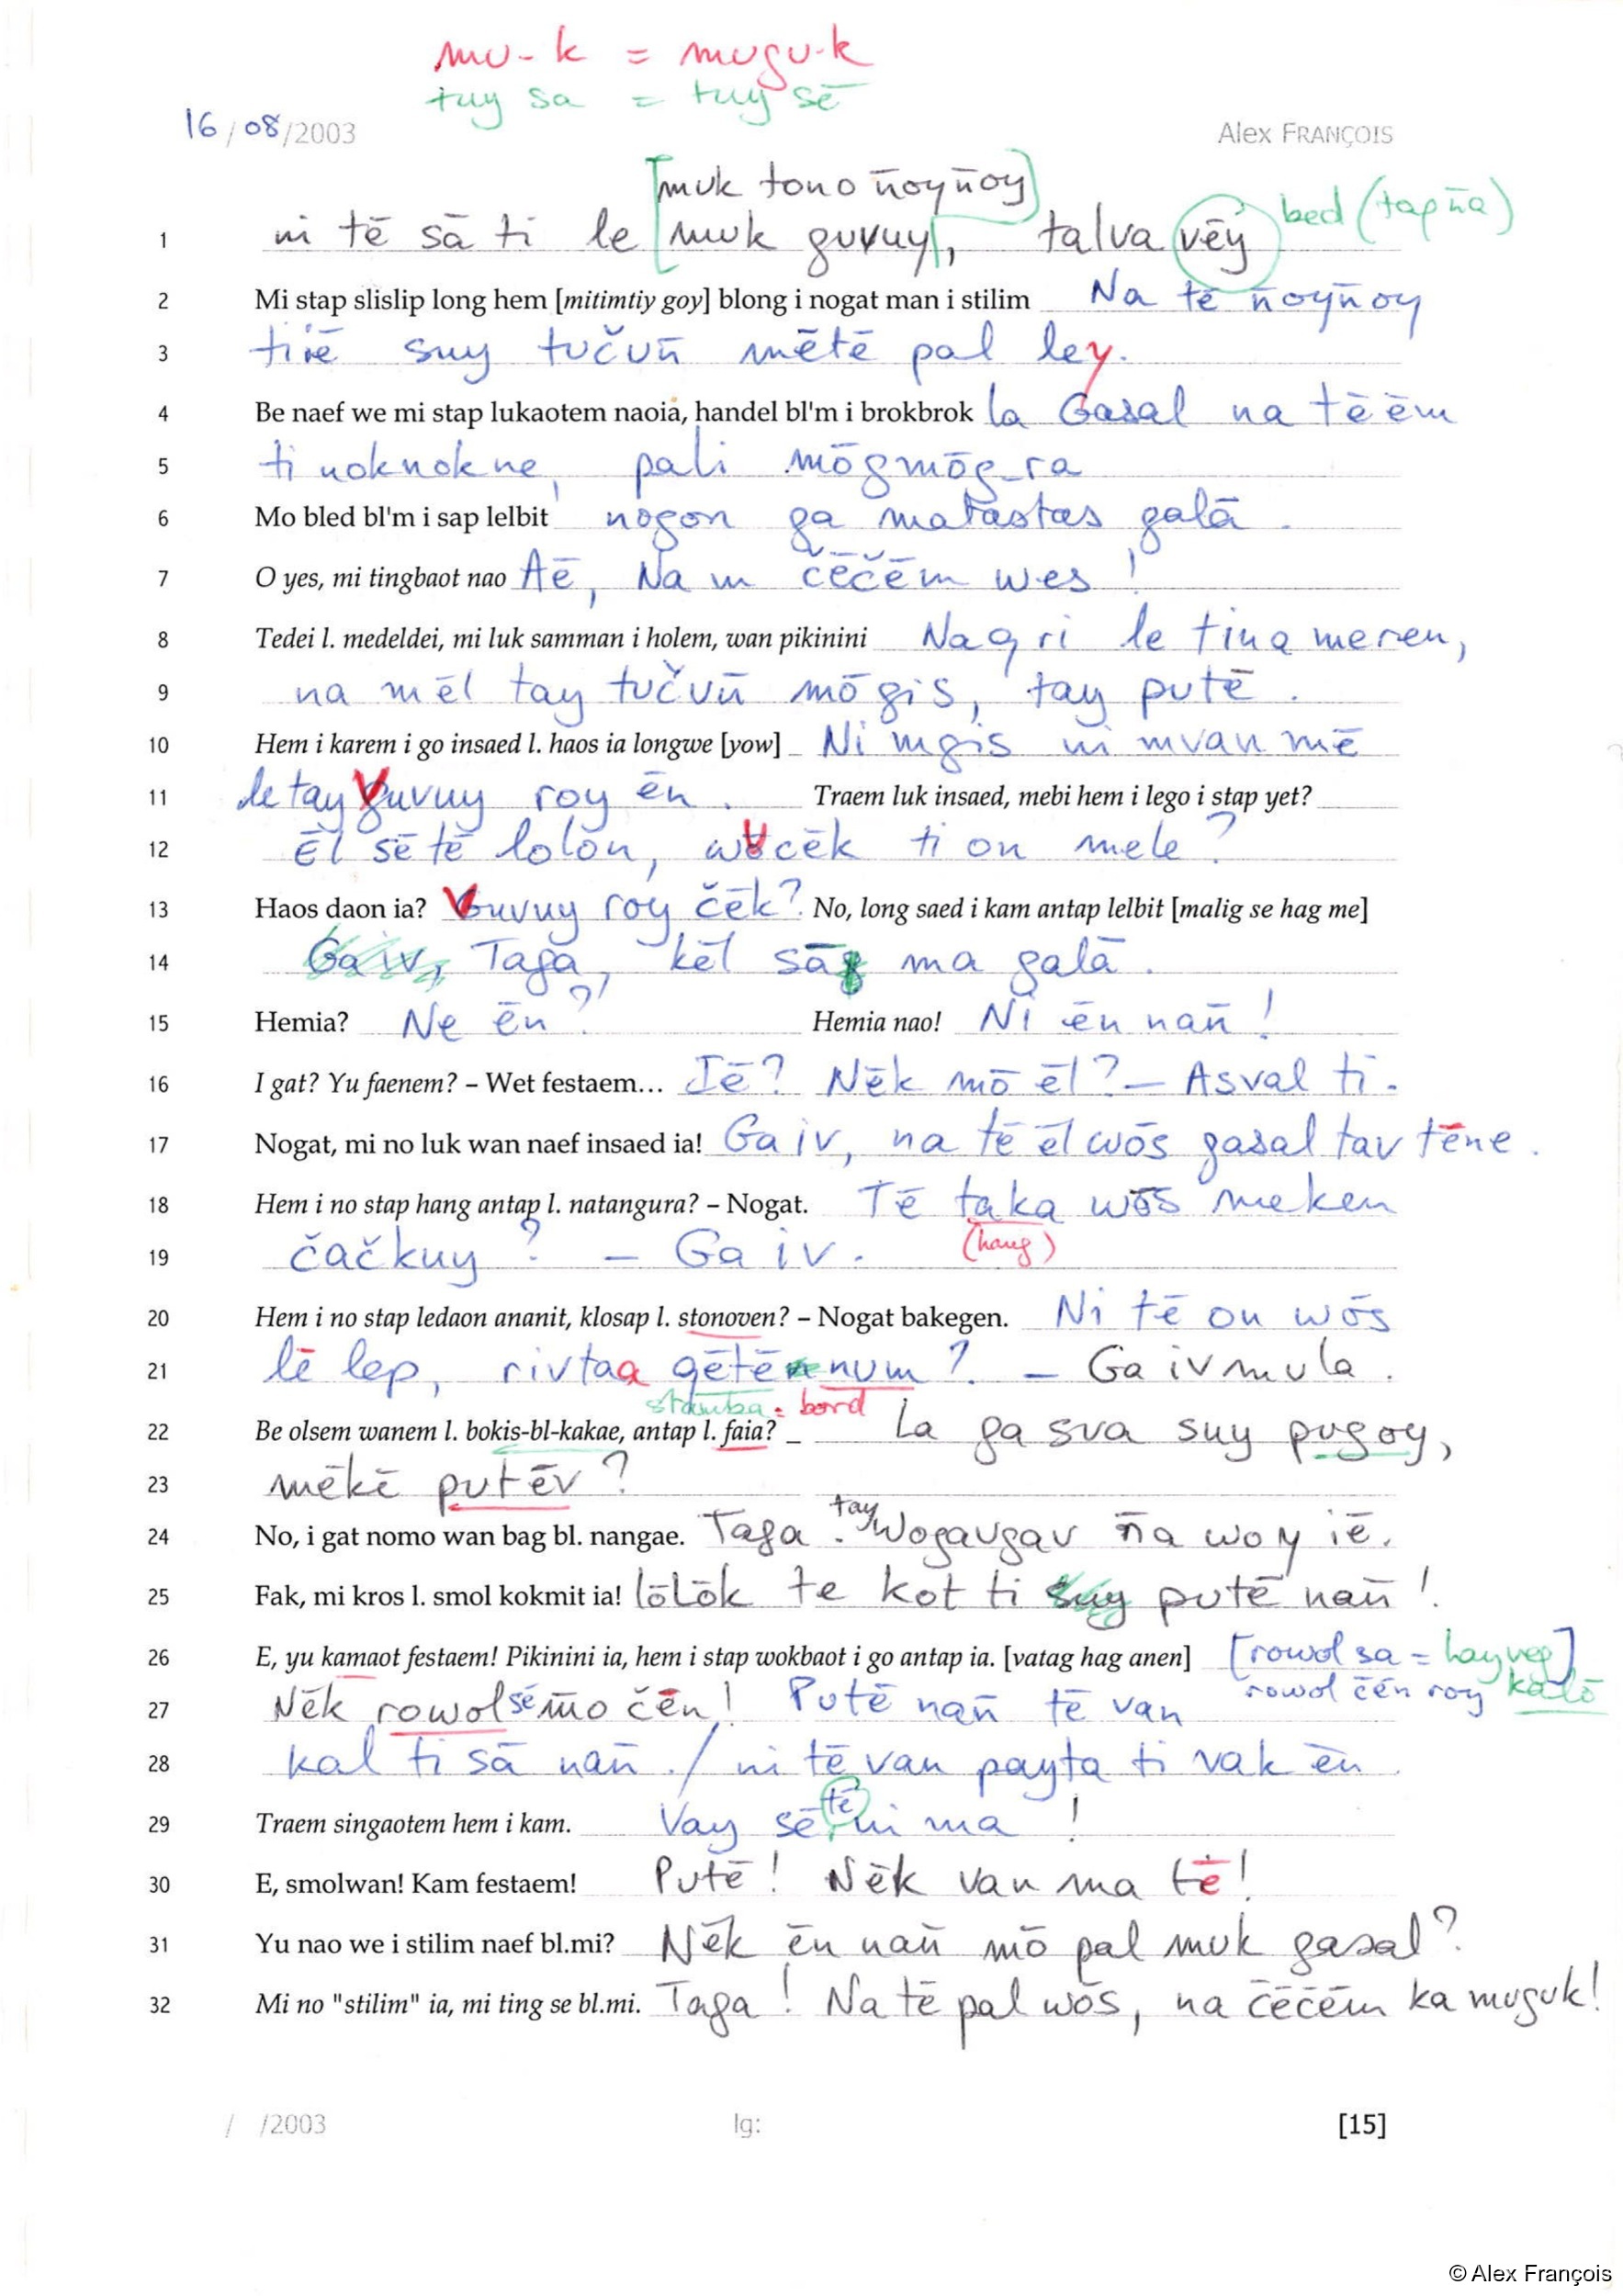 mu-k = mugu-k
tuy sa = tuy sē
16/08/2003 Alex FRANÇOIS
[muk tono n̄oyn̄oy]
1 ni tē sā ti le [muk guvuy], talva vēy bed (tapn̄a)
2 Mi stap slislip long hem [mitimtiy goy] blong i nogat man i stilim Na tē n̄oyn̄oy
3 tirē suy tučun̄ mētē pal ley.
4 Be naef we mi stap lukaotem naoia, handel bl'm i brokbrok la Gasal na tē ēm
5 ti noknok ne, pali mōgmōg-ra
6 Mo bled bl'm i sap lelbit nogon ga matastas galā.
7 O yes, mi tingbaot nao Aē, Na m čēčēm wes !
8 Tedei l. medeldei, mi luk samman i holem, wan pikinini Naqri le tinq meren,
9 na m ēl tay tučun̄ mō gis, tay putē.
10 Hem i karem i go insaed l. haos ia longwe [yow] Ni mgis ni mvan mē
11 le tay Vuvuy roy ēn. Traem luk insaed, mebi hem i lego i stap yet?
12 Ēl sē tē lolōn, wočēk ti on mele ?
13 Haos daon ia? Vuvuy roy čēk? No, long saed i kam antap lelbit [malig se hag me]
14 Ga iv, Taga, kēl sā ma galā.
15 Hemia? Ne ēn ? Hemia nao! Ni ēn nan̄ !
16 I gat? Yu faenem? – Wet festaem... Iē? Nēk mō ēl? — Asval ti.
17 Nogat, mi no luk wan naef insaed ia! Ga iv, na tē ēl wōs gasal tav tēne.
18 Hem i no stap hang antap l. natangura? – Nogat. Tē taka wōs meken
19 čačkuy ? — Ga iv. (hang)
20 Hem i no stap ledaon ananit, klosap l. stonoven? – Nogat bakegen. Ni tē on wōs
21 lē lep, rivtaq qētēnum ? — Ga iv mula.
stamba = bord
22 Be olsem wanem l. bokis-bl-kakae, antap l. faia? La ga sva suy pugoy,
23 mēkē putēv ?
24 No, i gat nomo wan bag bl. nangae. Taga. tay Wogavgav n̄a woy iē.
25 Fak, mi kros l. smol kokmit ia! lōlōk te kot ti suy putē nan̄ !
26 E, yu kamaot festaem! Pikinini ia, hem i stap wokbaot i go antap ia. [vatag hag anen] [rowol sa = hayveg]
rowol čēn roy kalō
27 Nēk rowol sē mō čēn ! Putē nan̄ tē van
28 kal ti sā nan̄ ./ ni tē van payta ti vak ēn
29 Traem singaotem hem i kam. Vay sē tē ni ma !
30 E, smolwan! Kam festaem! Putē ! Nēk van ma tē !
31 Yu nao we i stilim naef bl.mi? Nēk ēn nan̄ mō pal muk gasal ?
32 Mi no "stilim" ia, mi ting se bl.mi. Taga ! Na tē pal wōs, na čēčēm ka muguk !
/ /2003 lg: [15]
© Alex François